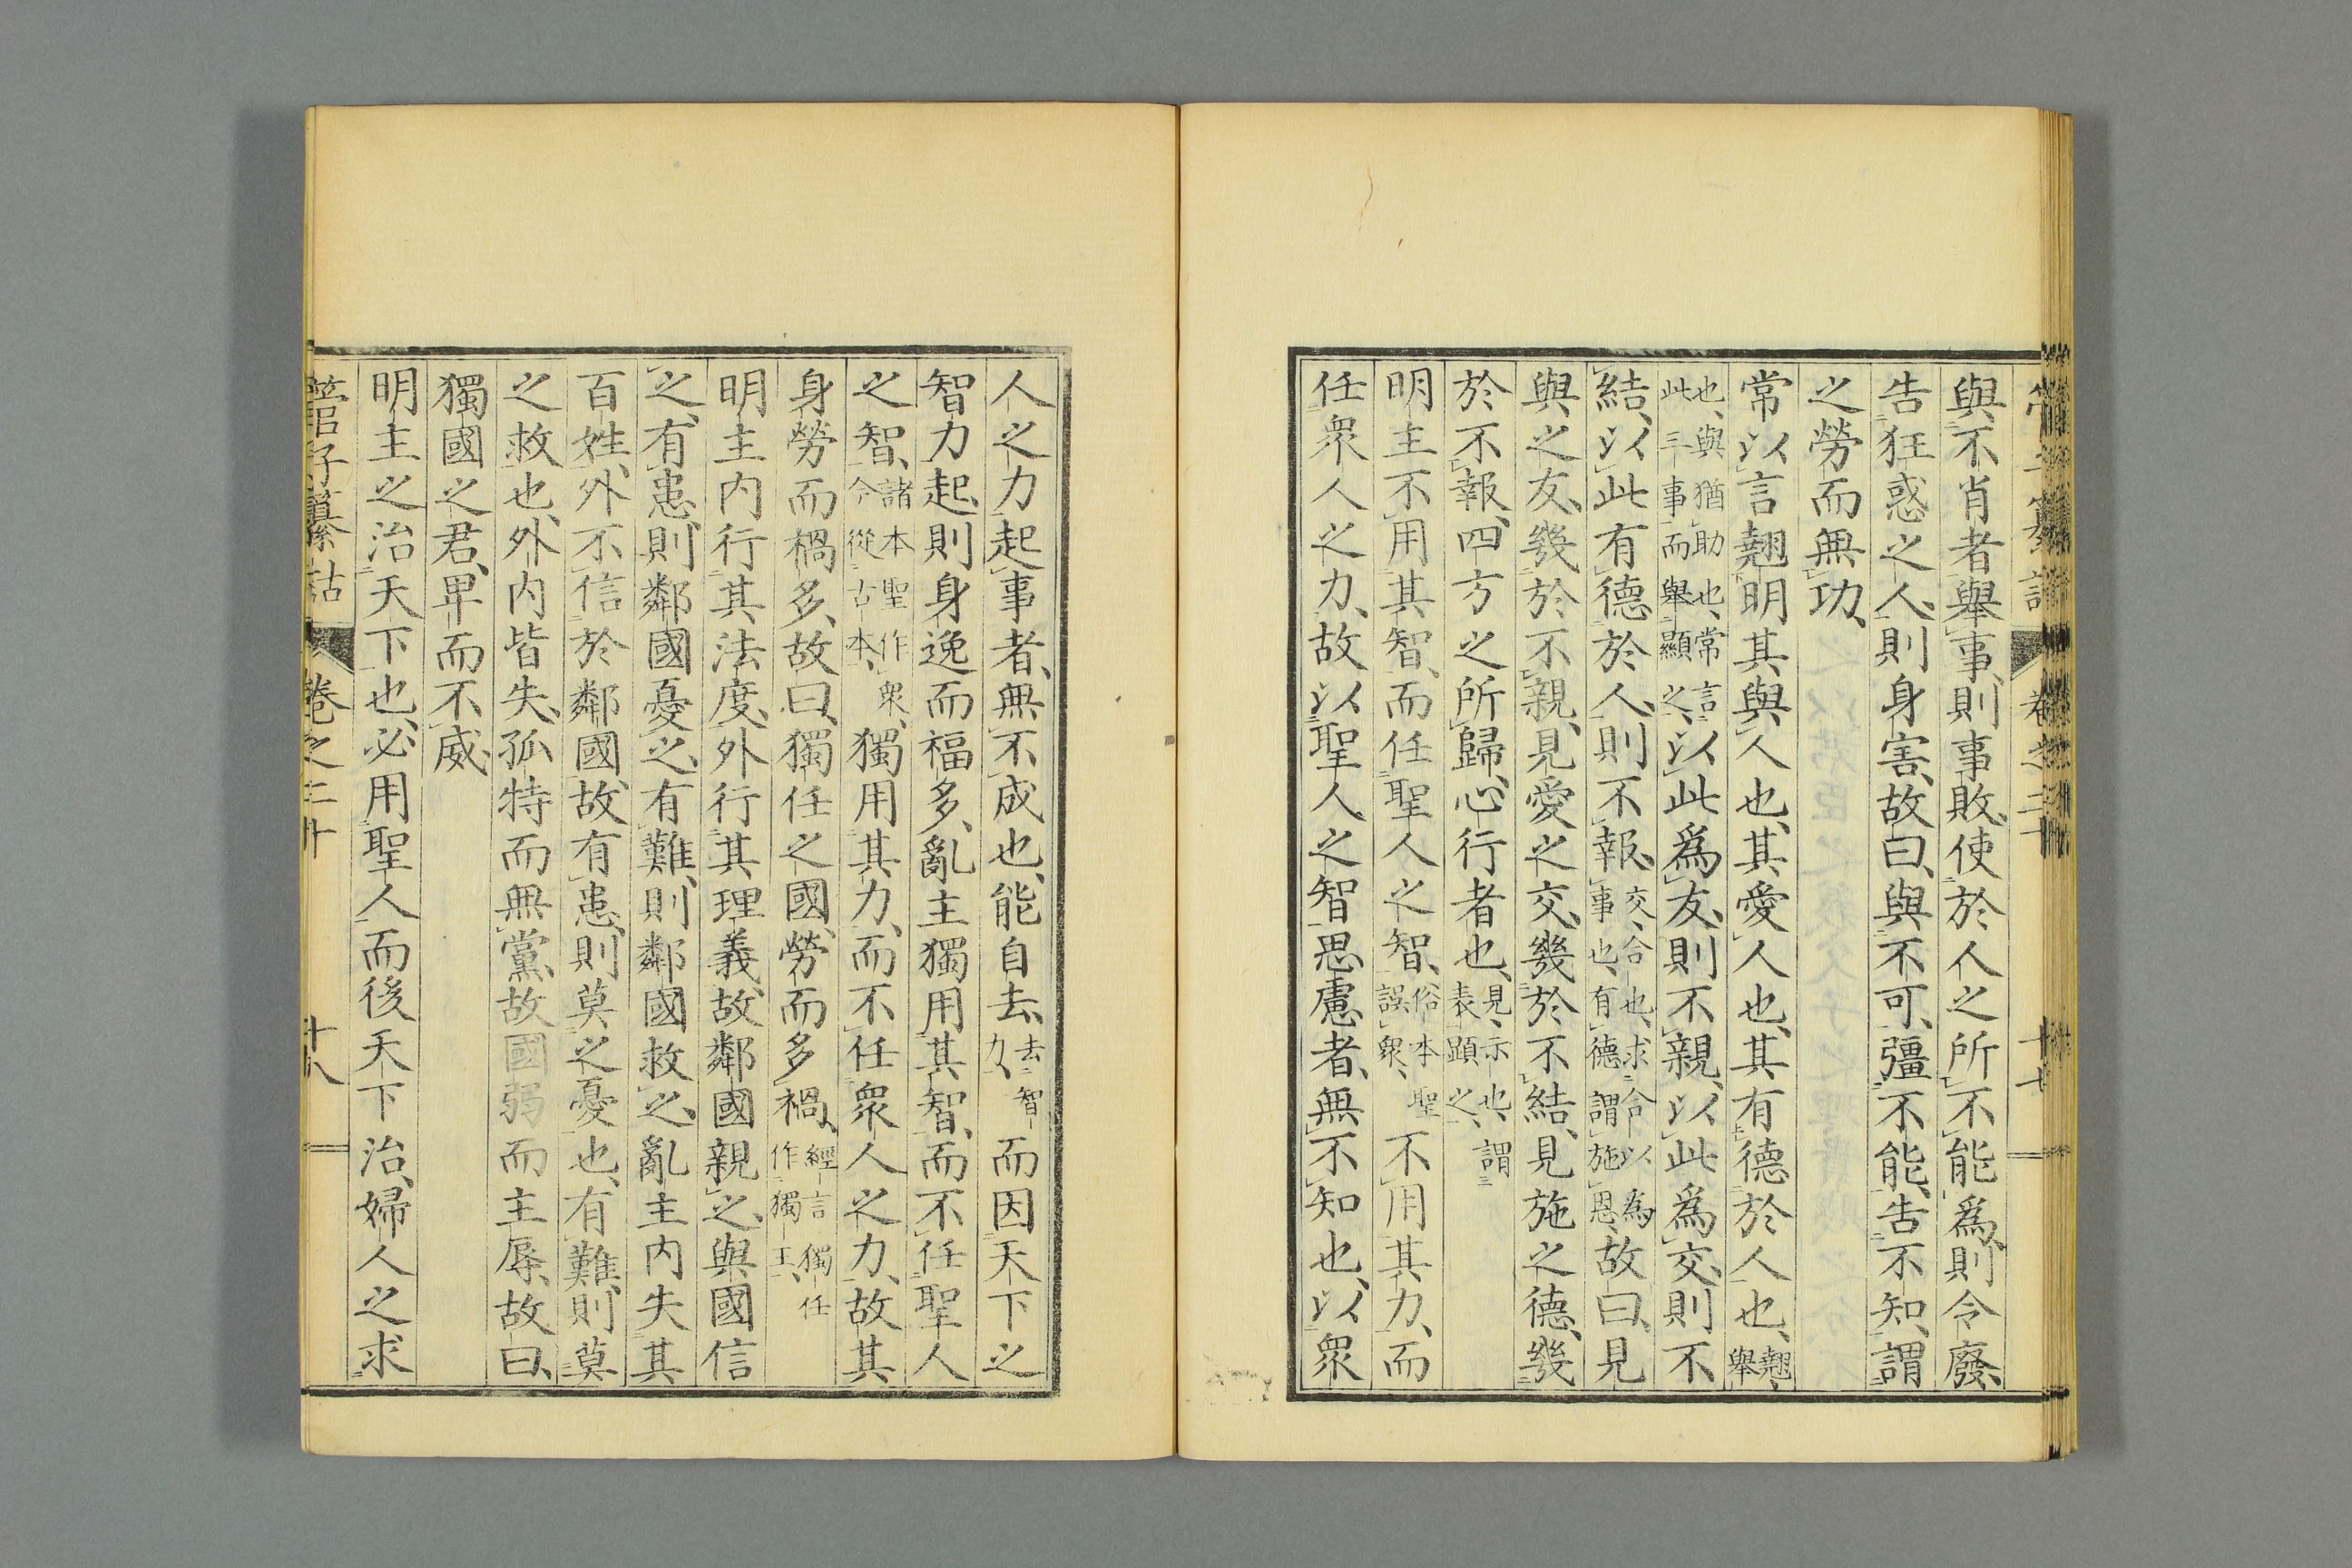 與、不肖者舉事、則事敗、使於人之所不能爲、則令廢、
告狂惑之人、則身害、故曰、與不可、彊不能、告不知、謂
之勞而無功、
常以言翹明其與人也、其愛人也、其有德於人也、翹、舉
也、與猶助也、常言此三事而舉顯之、以此爲友、則不親、以此爲交、則不
結、以此有德於人、則不報、交、合也、求合以為事也、有德謂施恩、故曰、見
與之友、幾於不親、見愛之交、幾於不結、見施之德、幾
於不報、四方之所歸、心行者也、見、示也、謂表顯之、
明主不用其智、而任聖人之智、俗本聖誤衆、不用其力、而
任衆人之力、故以聖人之智思慮者、無不知也、以衆
人之力起事者、無不成也、能自去、去智力、而因天下之
智力起、則身逸而福多、亂主獨用其智、而不任聖人
之智、諸本聖作衆、今從古本、獨用其力、而不任衆人之力、故其
身勞而禍多、故曰、獨任之國、勞而多禍、經言獨任作獨王、
明主內行其法度、外行其理義、故鄰國親之、與國信
之、有患、則鄰國憂之、有難、則鄰國救之、亂主內失其
百姓、外不信於鄰國、故有患、則莫之憂也、有難、則莫
之救也、外內皆失、孤特而無黨、故國弱而主辱、故曰、
獨國之君、卑而不威、
明主之治天下也、必用聖人而後天下治、婦人之求
管子纂詁 卷之二十 十八